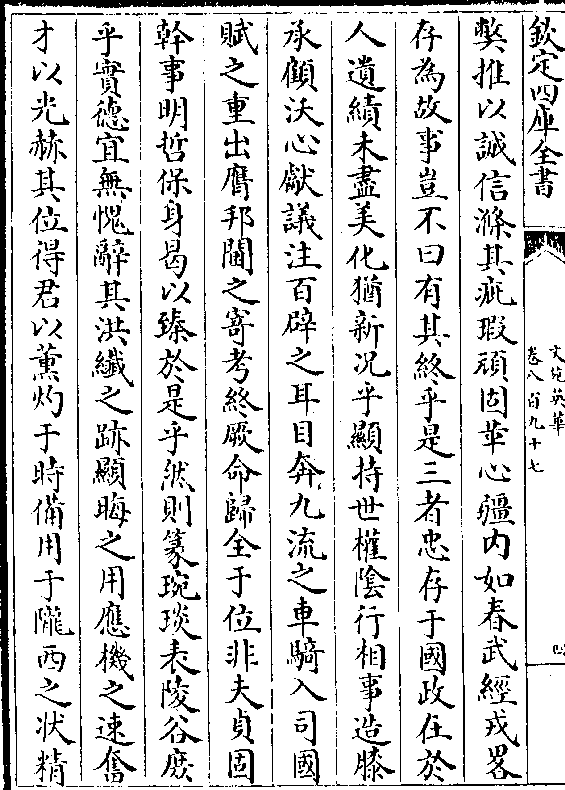 欽定四庫全書
文苑英華
卷八百九十七
四
獘推以誠信滌其疵瑕頑固革心疆内如春武經戎畧
存為故事豈不曰有其終乎是三者忠存于國政在於
人遺績未盡美化猶新况乎顯持世權陰行相事造膝
承顧沃心獻議注百辟之耳目奔九流之車騎入司國
賦之重出膺邦閫之寄考終厥命歸全于位非夫貞固
幹事明哲保身曷以臻於是乎然則篆琬琰表陵谷庻
乎實德宜無愧辭其洪纎之跡顯晦之用應機之速奮
才以光赫其位得君以薫灼于時備用于隴西之状精